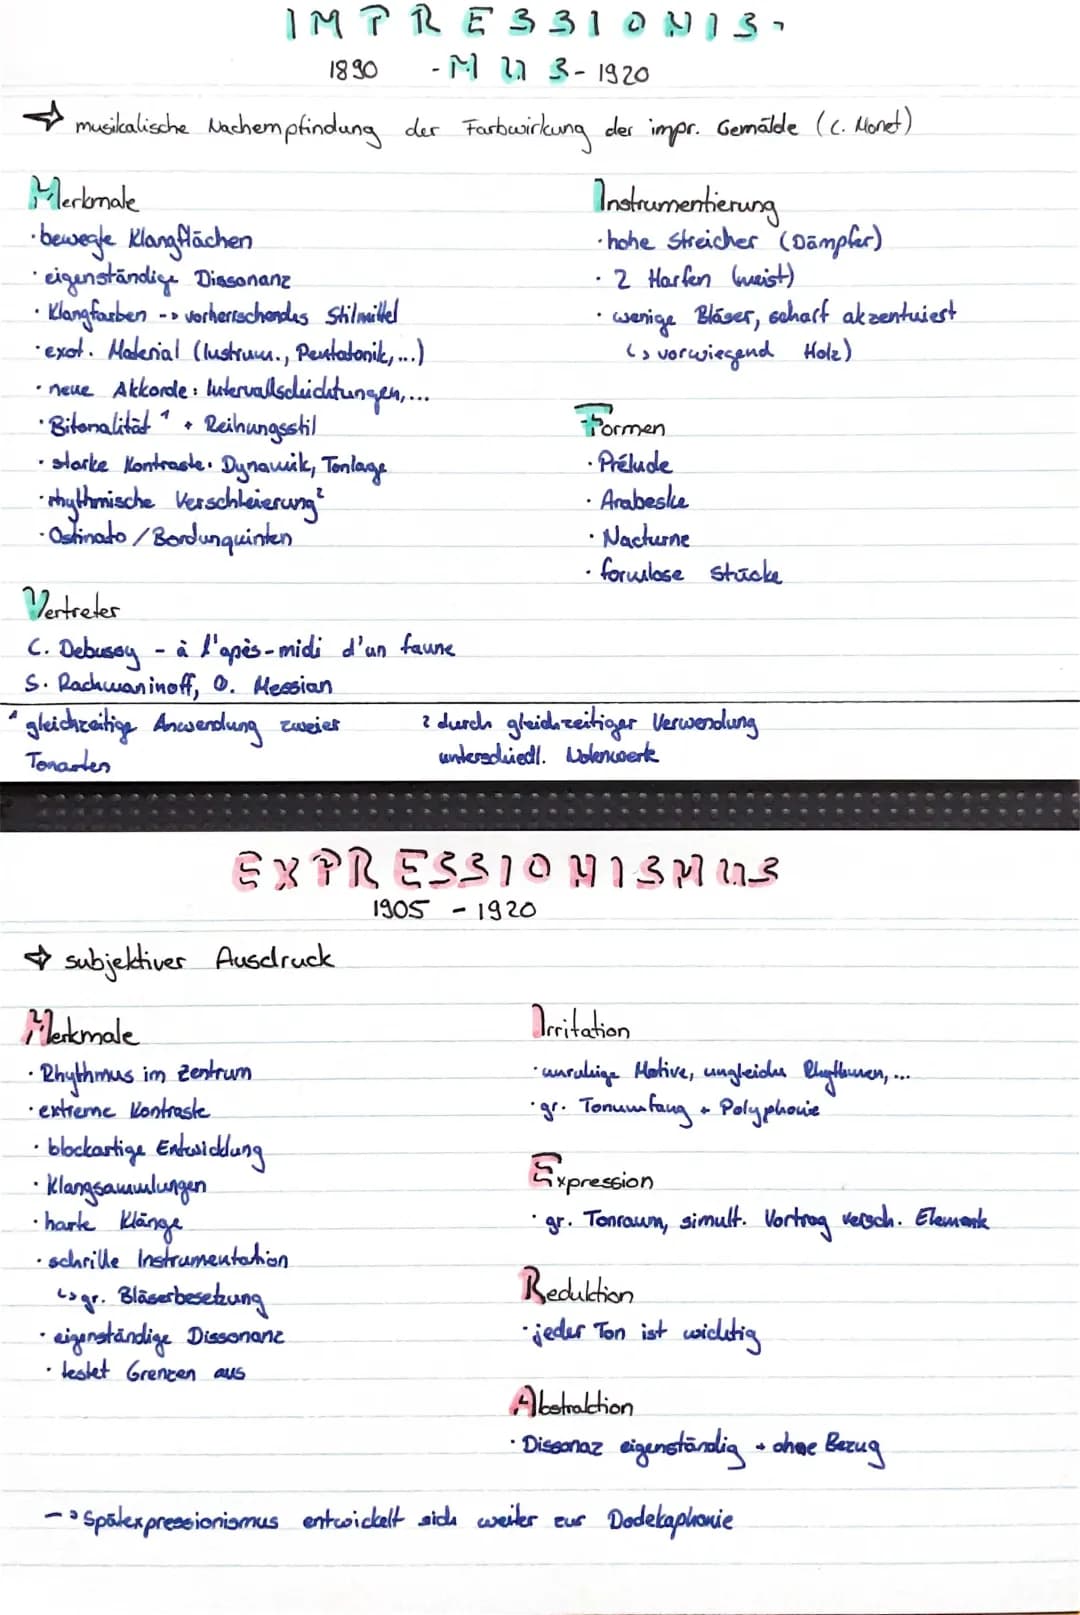 IMPRESSIONIS-
1890 -MUS- 1920
→ musikalische Nachempfindung der Farbwirkung der impr. Gemälde (C. Monet)
Merkmale
· bewegte Klangflächen
· eigenständige Dissonanz
· Klangfarben -> vorherrschendes Stilmittel
· exot. Material (Instrum., Pentatonik,...)
· neue Akkorde: Intervallschichtungen,...
· Bitonalität ¹ + Reihungsstil
· starke Kontraste: Dynamik, Tonlage
· rhythmische Verschleierung²
· Ostinato / Bordunquinten
Instrumentierung
· hohe Streicher (Dämpfer)
· 2 Harfen (meist)
· wenige Bläser, scharf akzentuiert
(↳ vorwiegend Holz)
Formen
· Prélude
· Arabeske
· Nacturne
· formlose Stücke
Vertreter
C. Debussy - à l'apès-midi d'un faune
S. Rachwaninoff, O. Messian
¹ gleichzeitige Anwendung zweier
Tonarten
² durch gleichzeitiger Verwendung
unterschiedl. Notenwerte
EXPRESSIONISMUS
1905 - 1920
→ subjektiver Ausdruck
Merkmale
· Rhythmus im Zentrum
· extreme Kontraste
· blockartige Entwicklung
· Klangsammlungen
· harte Klänge
· schrille Instrumentation
↳ gr. Bläserbesetzung
· eigenständige Dissonanz
· testet Grenzen aus
Irritation
· unruhige Motive, ungleiche Rhythmen, ...
· gr. Tonumfang + Polyphonie
Expression
· gr. Tonraum, simult. Vortrag versch. Elemente
Reduktion
· jeder Ton ist wichtig
Abstraktion
· Dissonaz eigenständig + ohne Bezug
-> Spätexpressionismus entwickelt sich weiter zur Dodekaphonie